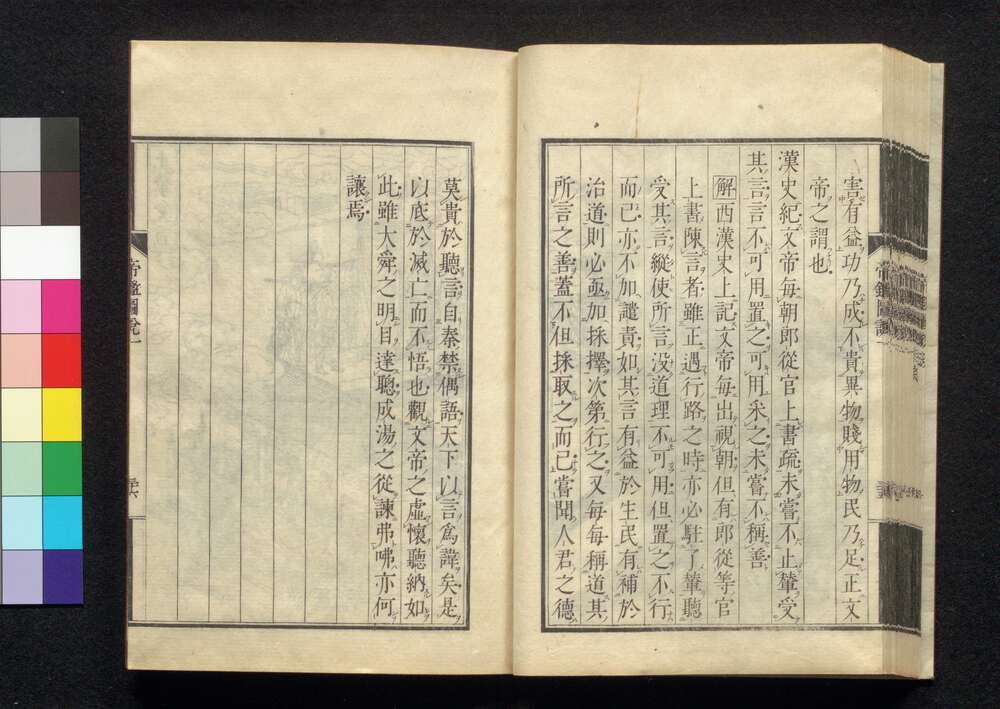 害有益功乃成不貴異物賤用物民乃足正文
帝之謂也
漢史紀文帝每朝郎從官上書疏未嘗不止輦受
其言言不可用置之可用采之未嘗不稱善
解西漢史上記文帝每出視朝但有郎從等官
上書陳言者雖正遇行路之時亦必駐了輦聽
受其言縱使所言没道理不可用但置之不行
而已亦不加譴責如其言有益於生民有補於
治道則必亟加採擇次第行之又每每稱道其
所言之善蓋不但採取之而已嘗聞人君之德
莫貴於聽言自秦禁偶語天下以言爲諱矣是
以底於滅亡而不悟也觀文帝之虛懷聽納如
此雖大舜之明目達聰成湯之從諫弗咈亦何
讓焉
帝鑑圖說一